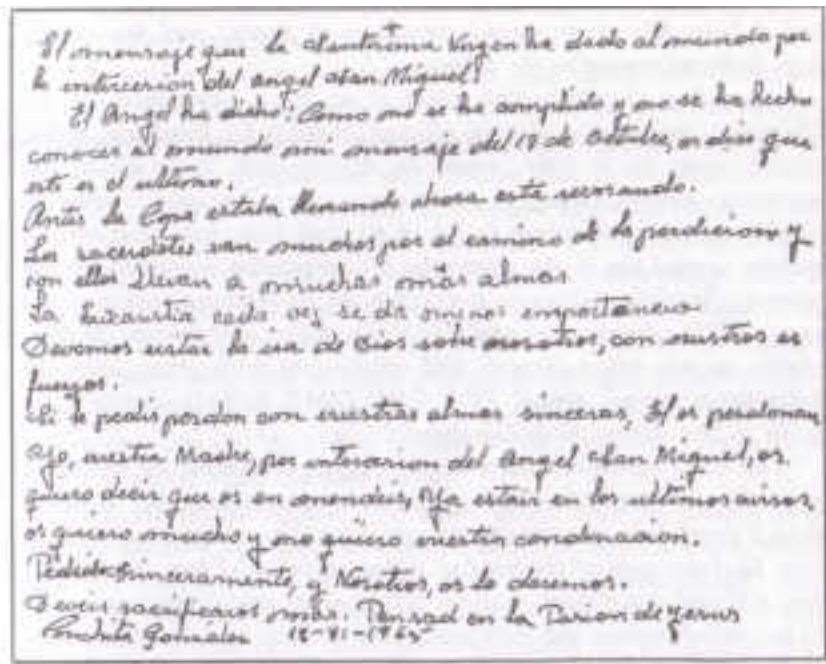 El mensaje que la Santísima Virgen ha dado al mundo por
la intercesion del angel San Miguel.
El Angel ha dicho: Como no se ha cumplido y no se ha hecho
conocer al mundo mi mensaje del 18 de Octubre, os dire que
este es el ultimo.
Antes la Copa estaba llenando ahora está rebosando.
Los sacerdotes van muchos por el camino de la perdicion y
con ellos llevan a muchas más almas
La Eucaristia cada vez se da menos importancia
Devemos evitar la ira de Dios sobre nosotros, con nuestros es
fuerzos.
Si le pedis perdon con vuestras almas sinceras, El os perdonará
Yo, vuestra Madre, por intercesion del Angel San Miguel, os
quiero decir que os enmendeis, Ya estais en los ultimos avisos
os quiero mucho y no quiero vuestra condenacion.
Pedidnos sinceramente, y Nosotros, os lo daremos.
Deveis sacrificaros más. Pensad en la Pasion de Jesus
Conchita González 18-VI-1965